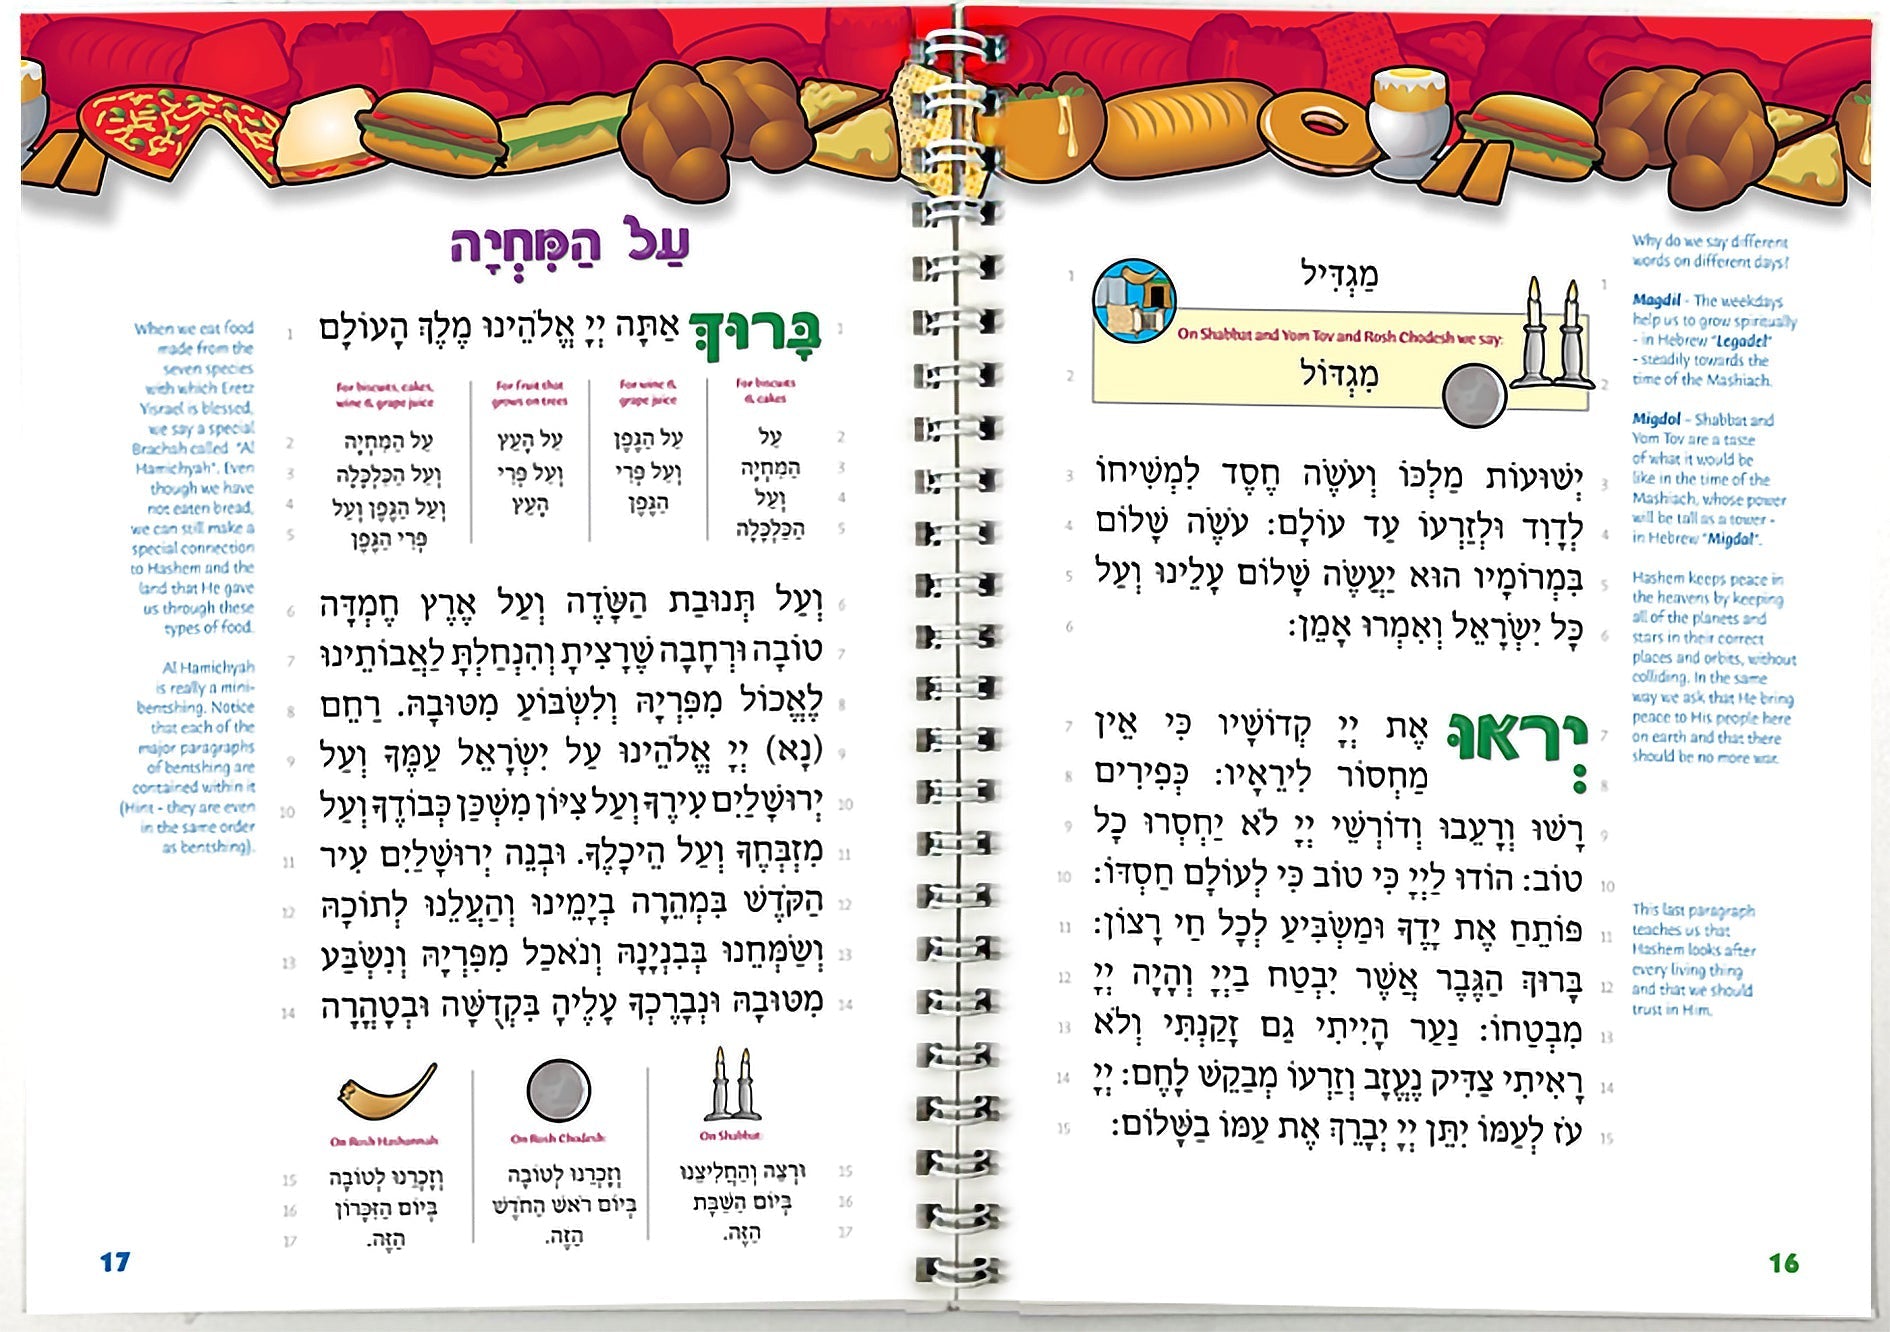 מַגְדִּיל
On Shabbat and Yom Tov and Rosh Chodesh we say:
מִגְדּוֹל
יְשׁוּעוֹת מַלְכּוֹ וְעֹשֶׂה חֶסֶד לִמְשִׁיחוֹ
לְדָוִד וּלְזַרְעוֹ עַד עוֹלָם: עֹשֶׂה שָׁלוֹם
בִּמְרוֹמָיו הוּא יַעֲשֶׂה שָׁלוֹם עָלֵינוּ וְעַל
כָּל יִשְׂרָאֵל וְאִמְרוּ אָמֵן:
יְראוּ אֶת יְיָ קְדוֹשָׁיו כִּי אֵין
מַחְסוֹר לִירֵאָיו: כְּפִירִים
רָשׁוּ וְרָעֵבוּ וְדוֹרְשֵׁי יְיָ לֹא יַחְסְרוּ כָל
טוֹב: הוֹדוּ לַיְיָ כִּי טוֹב כִּי לְעוֹלָם חַסְדּוֹ:
פּוֹתֵחַ אֶת יָדֶךָ וּמַשְׂבִּיעַ לְכָל חַי רָצוֹן:
בָּרוּךְ הַגֶּבֶר אֲשֶׁר יִבְטַח בַּיְיָ וְהָיָה יְיָ
מִבְטַחוֹ: נַעַר הָיִיתִי גַם זָקַנְתִּי וְלֹא
רָאִיתִי צַדִּיק נֶעֱזָב וְזַרְעוֹ מְבַקֵּשׁ לָחֶם: יְיָ
עֹז לְעַמּוֹ יִתֵּן יְיָ יְבָרֵךְ אֶת עַמּוֹ בַשָּׁלוֹם:
1
2
3
4
5
6
7
8
9
10
11
12
13
14
15
Why do we say different
words on different days?
Magdil - The weekdays
help us to grow spiritually
- in Hebrew "Legadel"
- steadily towards the
time of the Mashiach.
Migdol - Shabbat and
Yom Tov are a taste
of what it would be
like in the time of the
Mashiach, whose power
will be tall as a tower -
in Hebrew "Migdal".
Hashem keeps peace in
the heavens by keeping
all of the planets and
stars in their correct
places and orbits, without
colliding. In the same
way we ask that He bring
peace to His people here
on earth and that there
should be no more war.
This last paragraph
teaches us that
Hashem looks after
every living thing
and that we should
trust in Him.
16
עַל הַמִּחְיָה
בָּרוּךְ אַתָּה יְיָ אֱלֹהֵינוּ מֶלֶךְ הָעוֹלָם
For biscuits
& cakes
עַל
הַמִּחְיָה
וְעַל
הַכַּלְכָּלָה
For wine &
grape juice
עַל הַגֶּפֶן
וְעַל פְּרִי
הַגֶּפֶן
For fruit that
grows on trees
עַל הָעֵץ
וְעַל פְּרִי
הָעֵץ
For biscuits, cakes,
wine & grape juice
עַל הַמִּחְיָה
וְעַל הַכַּלְכָּלָה
וְעַל הַגֶּפֶן וְעַל
פְּרִי הַגֶּפֶן
וְעַל תְּנוּבַת הַשָּׂדֶה וְעַל אֶרֶץ חֶמְדָּה
טוֹבָה וּרְחָבָה שֶׁרָצִיתָ וְהִנְחַלְתָּ לַאֲבוֹתֵינוּ
לֶאֱכוֹל מִפִּרְיָהּ וְלִשְׂבּוֹעַ מִטּוּבָהּ. רַחֵם
(נָא) יְיָ אֱלֹהֵינוּ עַל יִשְׂרָאֵל עַמֶּךָ וְעַל
יְרוּשָׁלַיִם עִירֶךָ וְעַל צִיּוֹן מִשְׁכַּן כְּבוֹדֶךָ וְעַל
מִזְבְּחֶךָ וְעַל הֵיכָלֶךָ. וּבְנֵה יְרוּשָׁלַיִם עִיר
הַקֹּדֶשׁ בִּמְהֵרָה בְיָמֵינוּ וְהַעֲלֵנוּ לְתוֹכָהּ
וְשַׂמְּחֵנוּ בְּבִנְיָנָהּ וְנֹאכַל מִפִּרְיָהּ וְנִשְׂבַּע
מִטּוּבָהּ וּנְבָרֶכְךָ עָלֶיהָ בִּקְדֻשָּׁה וּבְטָהֳרָה
On Shabbat:
וּרְצֵה וְהַחֲלִיצֵנוּ
בְּיוֹם הַשַּׁבָּת
הַזֶּה.
On Rosh Chodesh:
וְזָכְרֵנוּ לְטוֹבָה
בְּיוֹם רֹאשׁ הַחֹדֶשׁ
הַזֶּה.
On Rosh Hashannah
וְזָכְרֵנוּ לְטוֹבָה
בְּיוֹם הַזִּכָּרוֹן
הַזֶּה.
1
2
3
4
5
6
7
8
9
10
11
12
13
14
15
16
17
When we eat food
made from the
seven species
with which Eretz
Yisrael is blessed,
we say a special
Brachah called "Al
Hamichyah". Even
though we have
not eaten bread,
we can still make a
special connection
to Hashem and the
land that He gave
us through these
types of food.
Al Hamichyah
is really a mini-
bentshing. Notice
that each of the
major paragraphs
of bentshing are
contained within it
(Hint - they are even
in the same order
as bentshing).
17